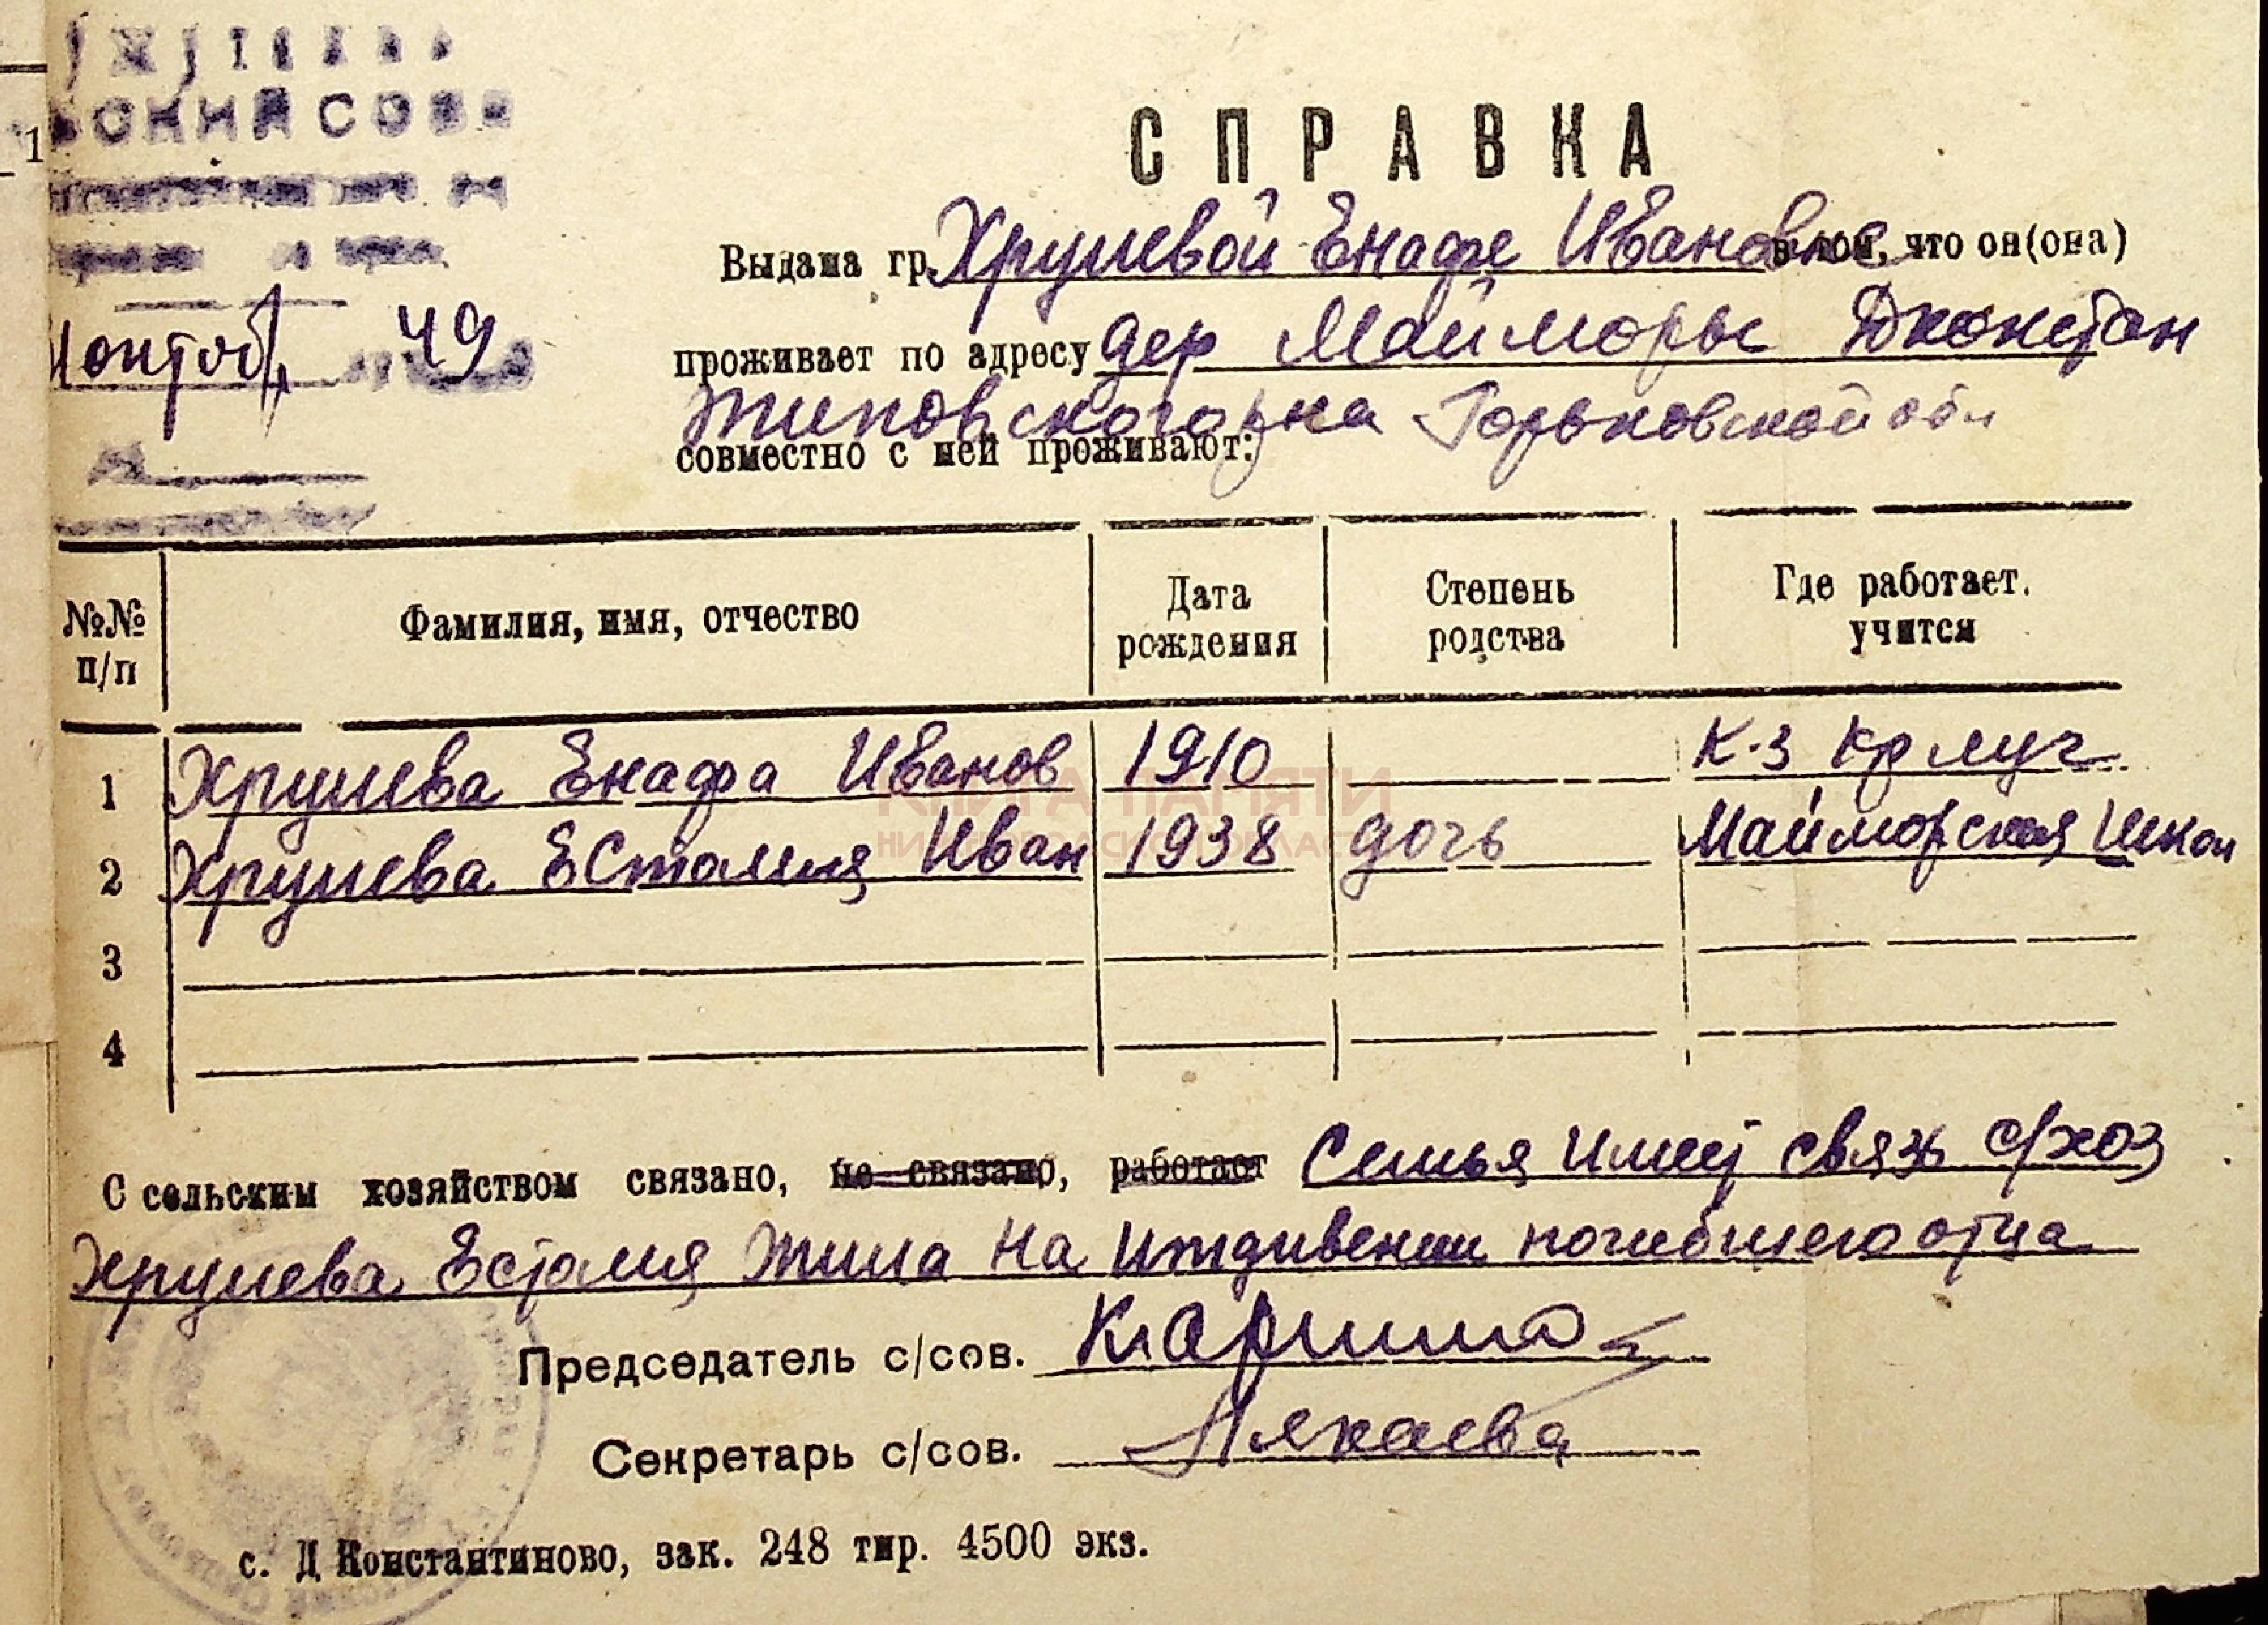 СКИЙ СОВЕ
1
49
СПРАВКА
Выдана гр. Хрулевой Енафе Ивановне в том, что он(она)
проживает по адресу дер Майморы Дконстан
тиновского рна Горьковской обл
совместно с ней проживают:
№№ п/п
Фамилия, имя, отчество
Дата рождения
Степень родства
Где работает. учится
1 Хрулева Енафа Иванов 1910 К-з Кр луч
2 Хрулева Есталия Иван 1938 дочь Майморская школ
3
4
КНИГА ПАМЯТИ
НИЖЕГОРОДСКОЙ ОБЛАСТИ
С сельским хозяйством связано, не связано, работает Семья имеет связь с/хоз
Хрулева Есталия жила на иждивении погибшего отца
Председатель с/сов.
Секретарь с/сов.
с. Д Константиново, зак. 248 тир. 4500 экз.